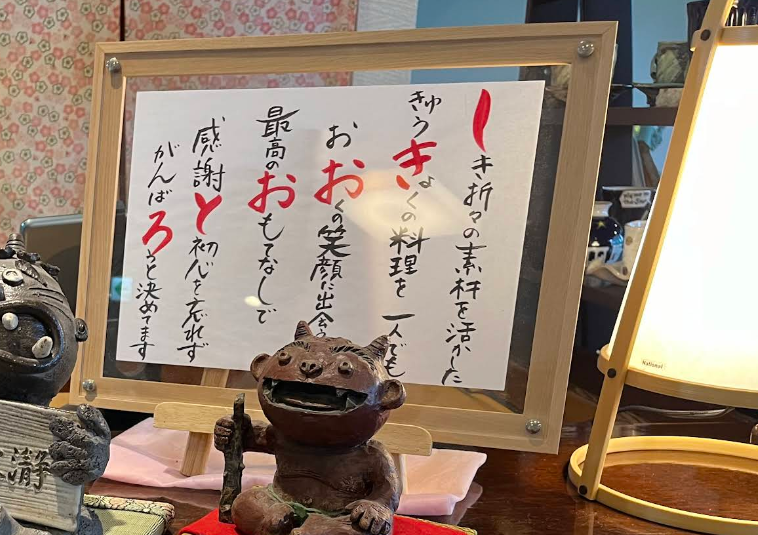 しき折々の素材を活かした
きゅうきょくの料理を 一人でも
おおくの笑顔に出会う
最高のおもてなしで
感謝と初心を忘れず
がんばろうと決めてます
National